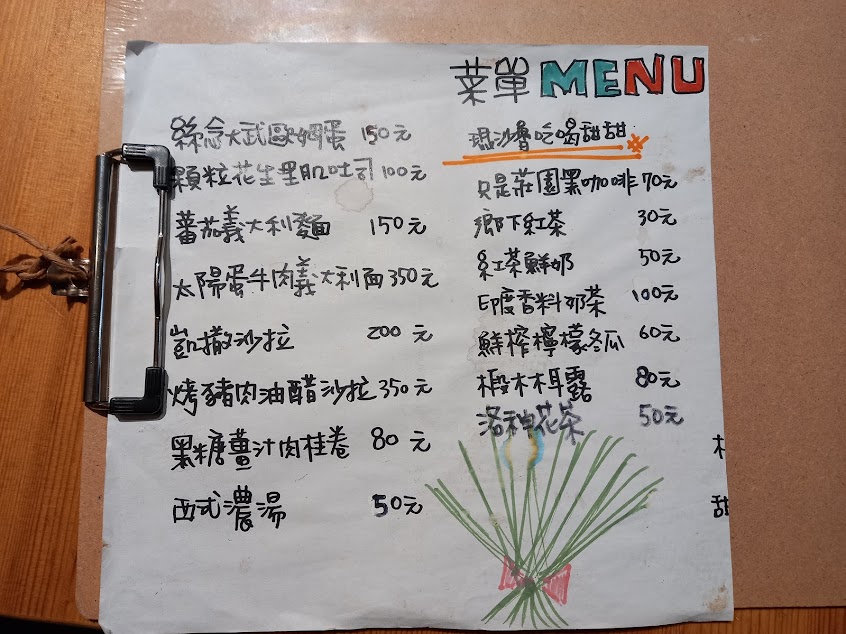 菜單 MENU
絲念大武歐姆蛋 150元
顆粒花生里肌吐司 100元
蕃茄義大利麵 150元
太陽蛋牛肉義大利面 350元
凱撒沙拉 200元
烤豬肉油醋沙拉 350元
黑糖薑汁肉桂卷 80元
西式濃湯 50元
瑪沙魯吃喝甜甜
只是莊園黑咖啡 70元
鄉下紅茶 30元
紅茶鮮奶 50元
印度香料奶茶 100元
鮮榨檸檬冬瓜 60元
椴木木耳露 80元
洛神花茶 50元
甜